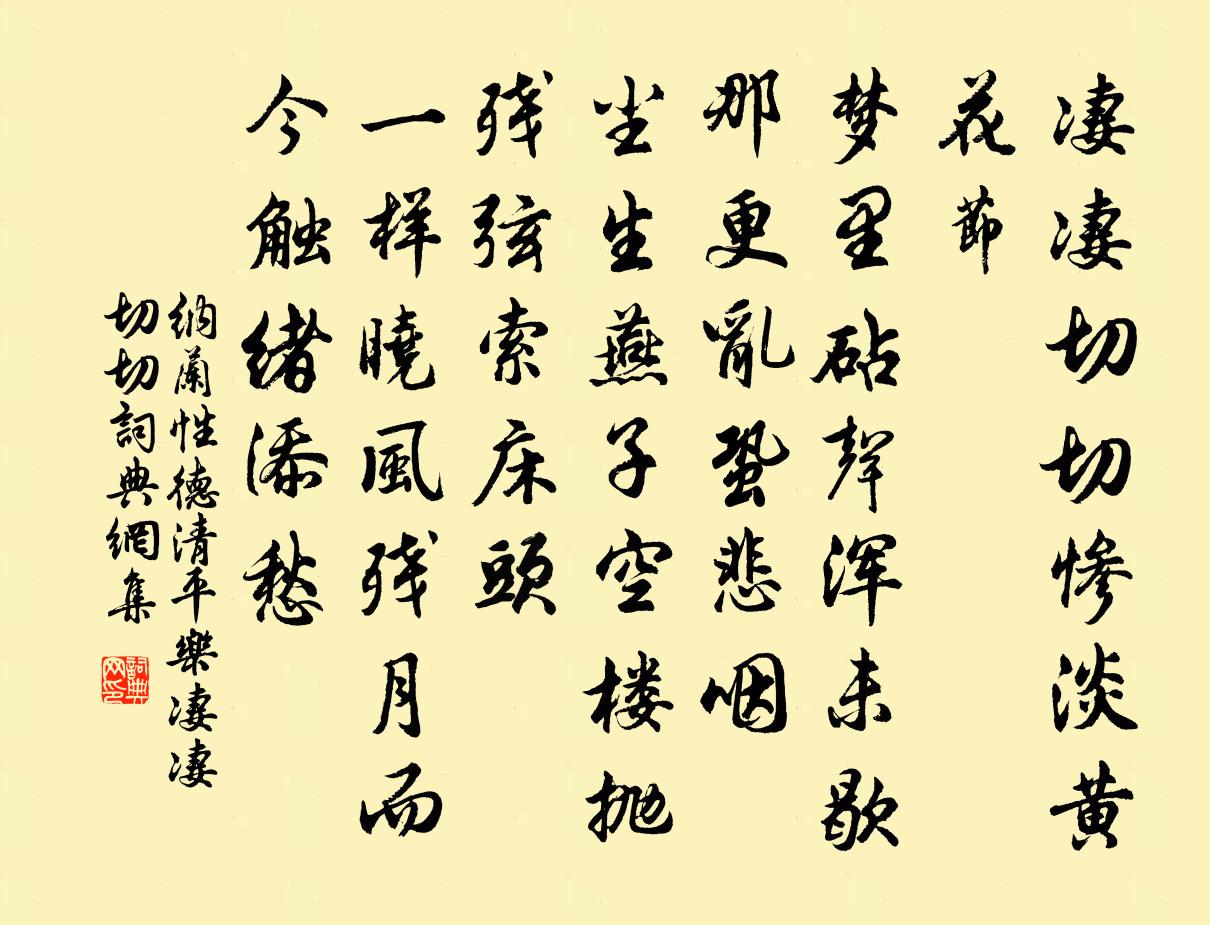 凄凄切切惨淡黄
花節
梦里砧聲浑未歇
那更亂蛩悲咽
尘生燕子空楼抛
残弦索床頭
一样曉風残月而
今触緒添愁
納蘭性德清平樂凄凄
切切詞典網集
詞典网印